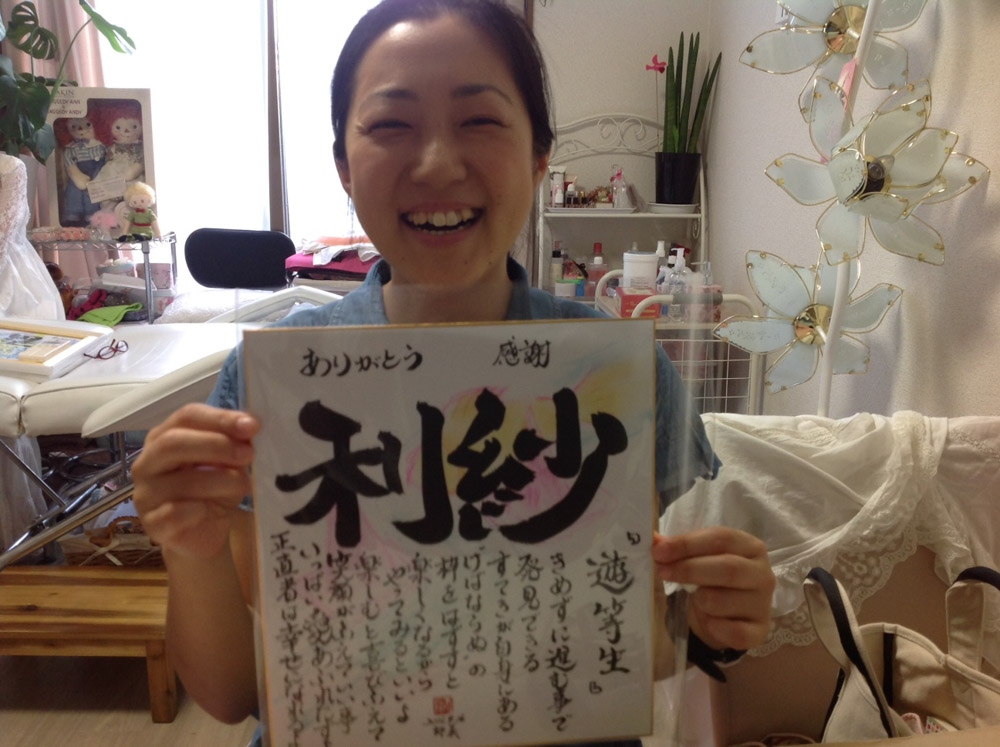 ありがとう 感謝
利紗
『遊等生』
きめずに進む事で
発見できる
すてきが自身にある
ねばならぬの
枠をはずすと
楽しくなるから
やってみるといいよ
楽しむと喜びふえて
笑顔がふえていい事
いっぱい
正直者は幸せになれ